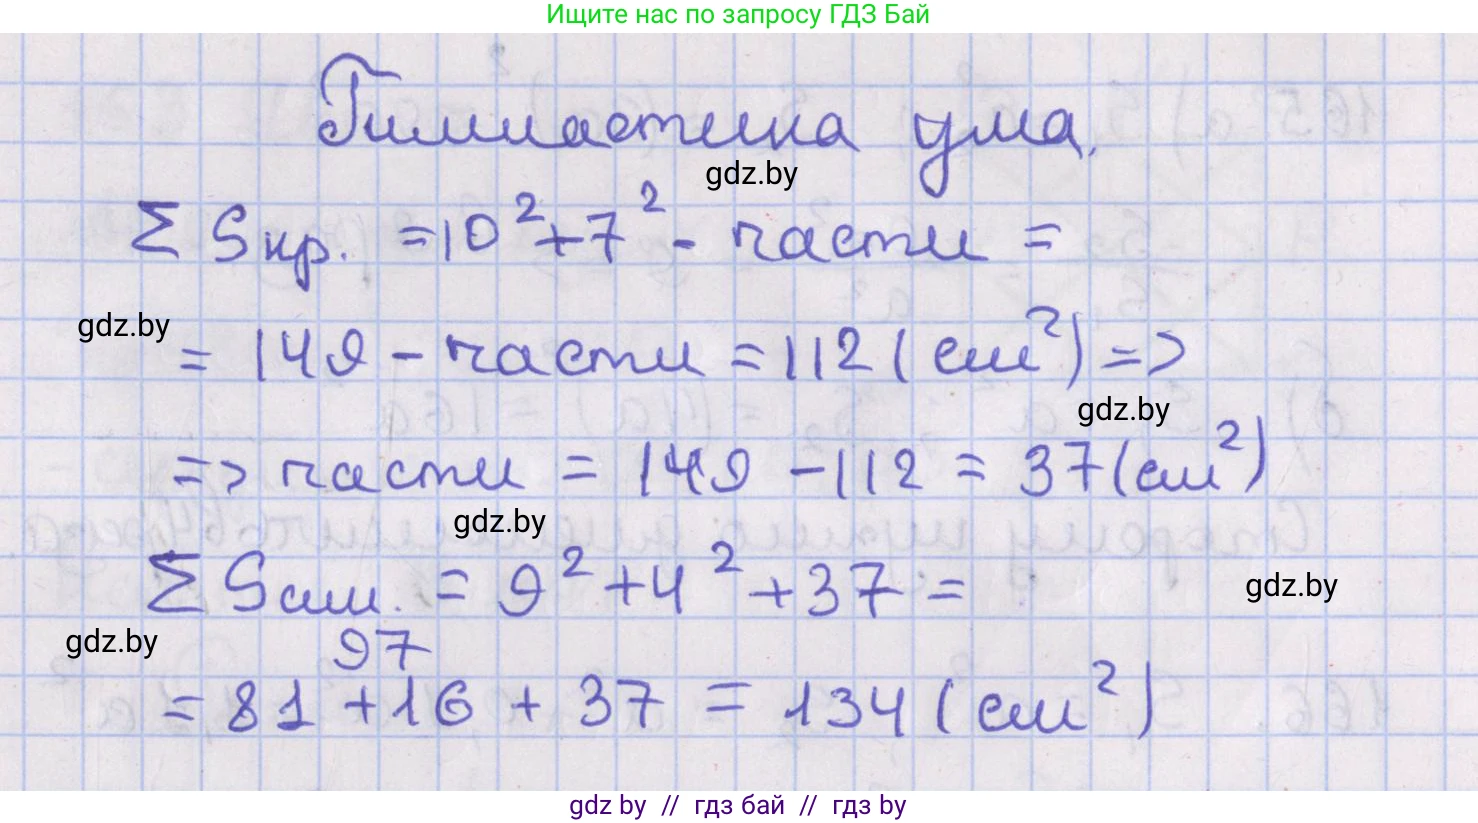 Ищите нас по запросу ГДЗ Бай
Гимнастика ума.
gdz.by
Σ Sкр. = 10² + 7² - части =
gdz.by
= 149 - части = 112 (см²) =>
gdz.by
=> части = 149 - 112 = 37 (см²)
gdz.by
Σ Sсин. = 9² + 4² + 37 =
gdz.by
gdz.by
97
= 81 + 16 + 37 = 134 (см²)
gdz by // гдз бай // гдз by